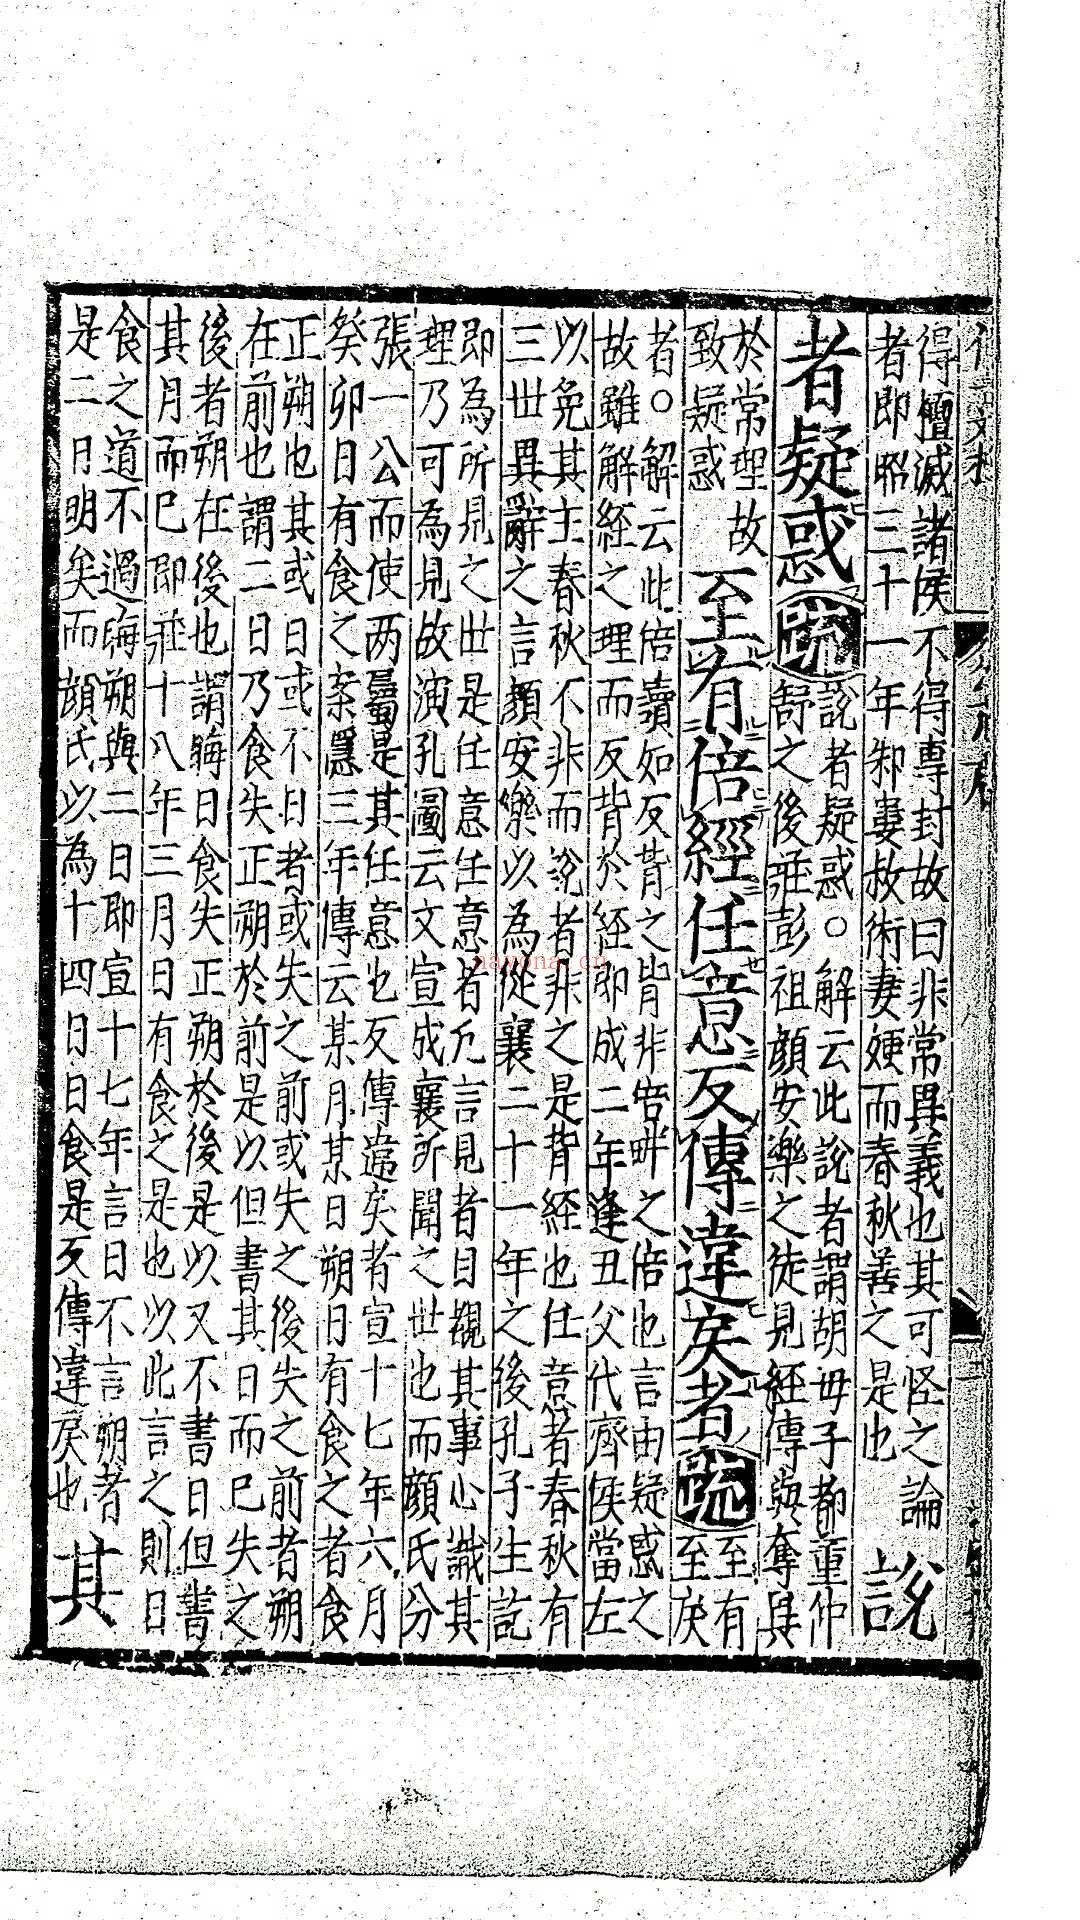 得擅滅諸侯不得專封故曰非常異義也其可怪之論
者即昭三十一年邾婁叔術妻嫂而春秋善之是也
說
者疑惑
疏
說者疑惑○解云此說者謂胡毋子都董仲
舒之後莊彭祖顏安樂之徒見經傳與奪異
於常理故
致疑惑
至有倍經任意反傳違戾者
疏
至有
至戾
者○解云此倍讀如反背之背非倍畔之倍也言由疑惑之
故雖解經之理而反背於經即成二年逢丑父代齊侯當左
以免其主春秋不非而說者非之是背經也任意者春秋有
三世異辭之言顏安樂以為從襄二十一年之後孔子生訖
即為所見之世是任意任意者凡言見者目覩其事心識其
理乃可為見故演孔圖云文宣成襄所聞之世也而顏氏分
張一公而使两屬是其任意也反傳違戾者宣十七年六月
癸卯日有食之案隱三年傳云某月某日朔日有食之者食
正朔也其或日或不日者或失之前或失之後失之前者朔
在前也謂二日乃食失正朔於前是以但書其日而已失之
後者朔在後也謂晦日食失正朔於後是以又不書日但書
其月而已即莊十八年三月日有食之是也以此言之則日
食之道不過晦朔與二日即宣十七年言日不言朔者
是二日明矣而顏氏以為十四日日食是反傳違戾也
其